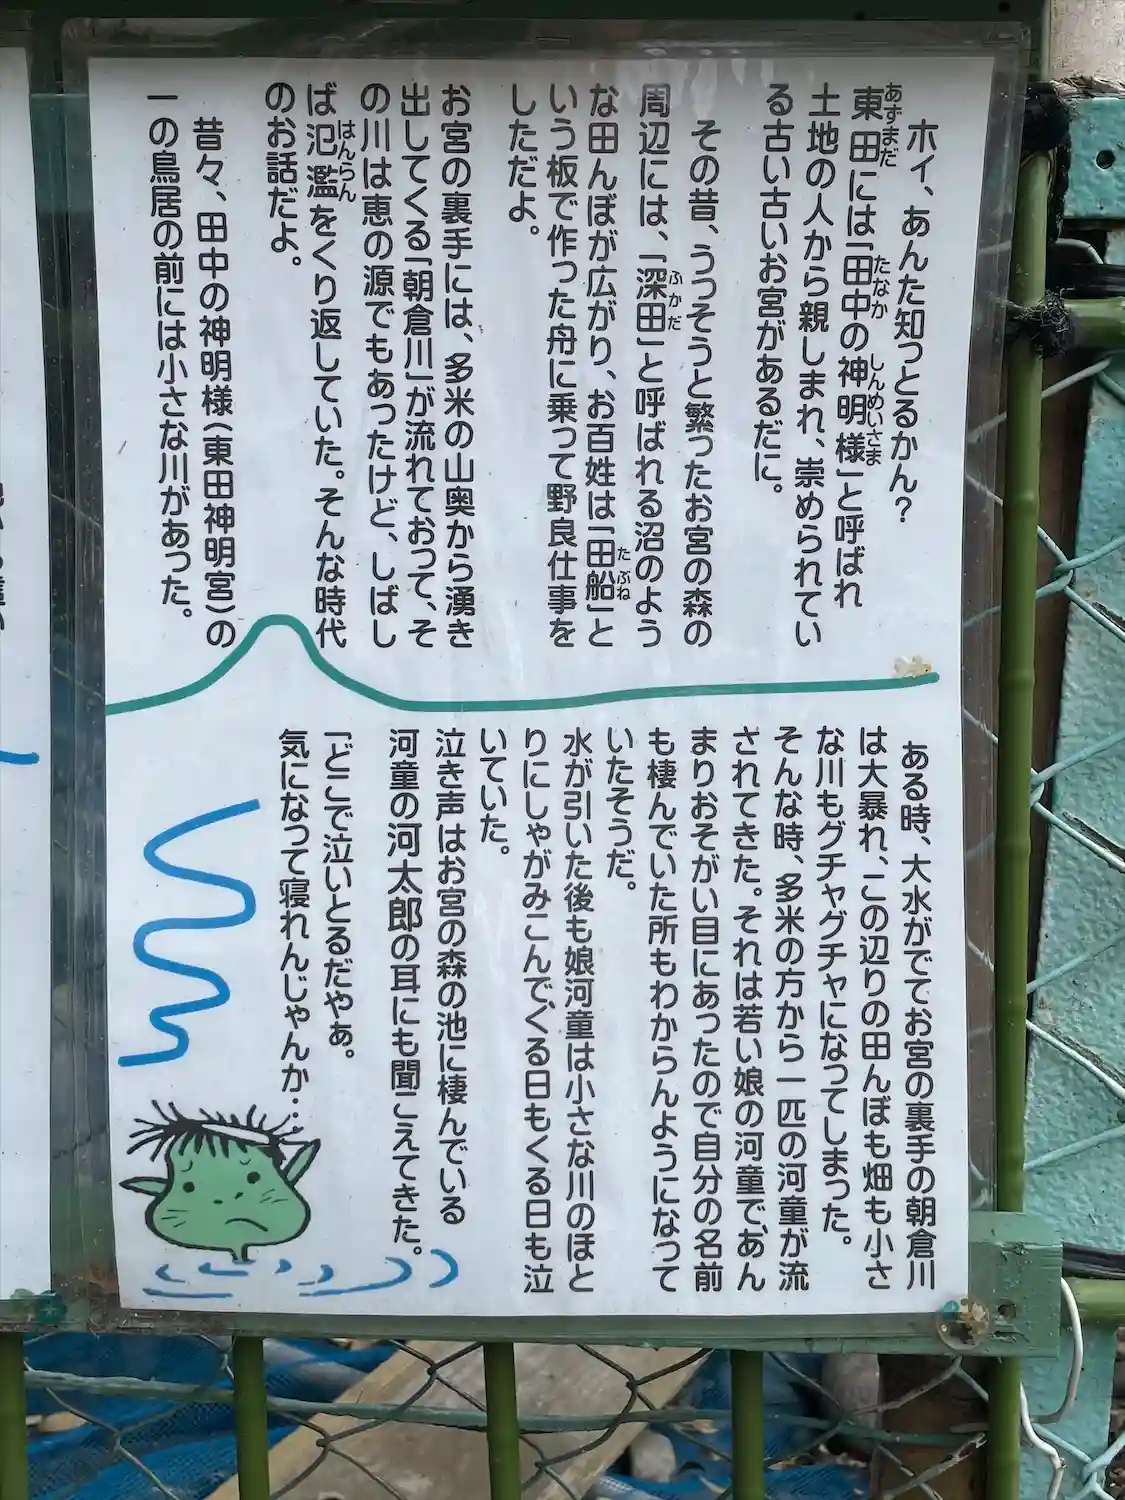 ホィ、あんた知っとるかん?
東田には「田中の神明様」と呼ばれ
あずまだ
たなか
しんめいさま
土地の人から親しまれ、崇められてい
る古い古いお宮があるだに。
その昔、うっそうと繁ったお宮の森の
周辺には、「深田」と呼ばれる沼のよう
ふかだ
な田んぼが広がり、お百姓は「田船」と
たぶね
いう板で作った舟に乗って野良仕事を
しただよ。
お宮の裏手には、多米の山奥から湧き
出してくる「朝倉川」が流れておって、そ
の川は恵の源でもあったけど、しばし
ば氾濫をくり返していた。そんな時代
はんらん
のお話だよ。
昔々、田中の神明様(東田神明宮)の
一の鳥居の前には小さな川があった。
ある時、大水がでてお宮の裏手の朝倉川
は大暴れ、この辺りの田んぼも畑も小さ
な川もグチャグチャになってしまった。
そんな時、多米の方から一匹の河童が流
されてきた。それは若い娘の河童で、あん
まりおそがい目にあったので自分の名前
も棲んでいた所もわからんようになって
いたそうだ。
水が引いた後も娘河童は小さな川のほと
りにしゃがみこんで、くる日もくる日も泣
いていた。
泣き声はお宮の森の池に棲んでいる
河童の河太郎の耳にも聞こえてきた。
「どこで泣いとるだやぁ。
気になって寝れんじゃんか・・・